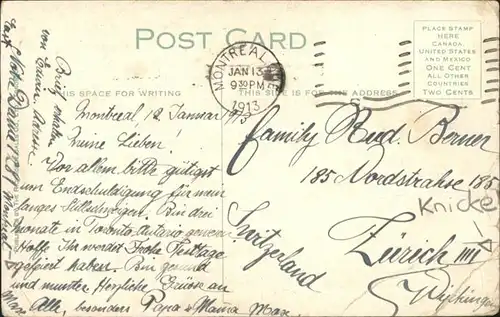 POST CARD
PLACE STAMP
HERE
CANADA,
UNITED STATES
AND MEXICO
ONE CENT
ALL OTHER
COUNTRIES
TWO CENTS
MONTREAL
JAN 13
9 30 PM
1913
THIS SPACE FOR WRITING
THIS SIDE IS FOR THE ADDRESS
Montreal 12 Januar 1913
Meine Lieben.
Vor allem bitte gütigst
um Endschuldigung für mein
langes Stillschweigen. Bin drei
Monate in Toronto Ontario gewesen
Hoffe Ihr werdet Frohe Festtage
gefeiert haben. Bin gesund
und munter Herzliche Grüsse an
Alle, besonders Papa & Mama Max.
Brief erhalten
von Eurer
Family Rud. Berner
185 Nordstrahse 185
Zürich IIII
Switzerland
Knicke